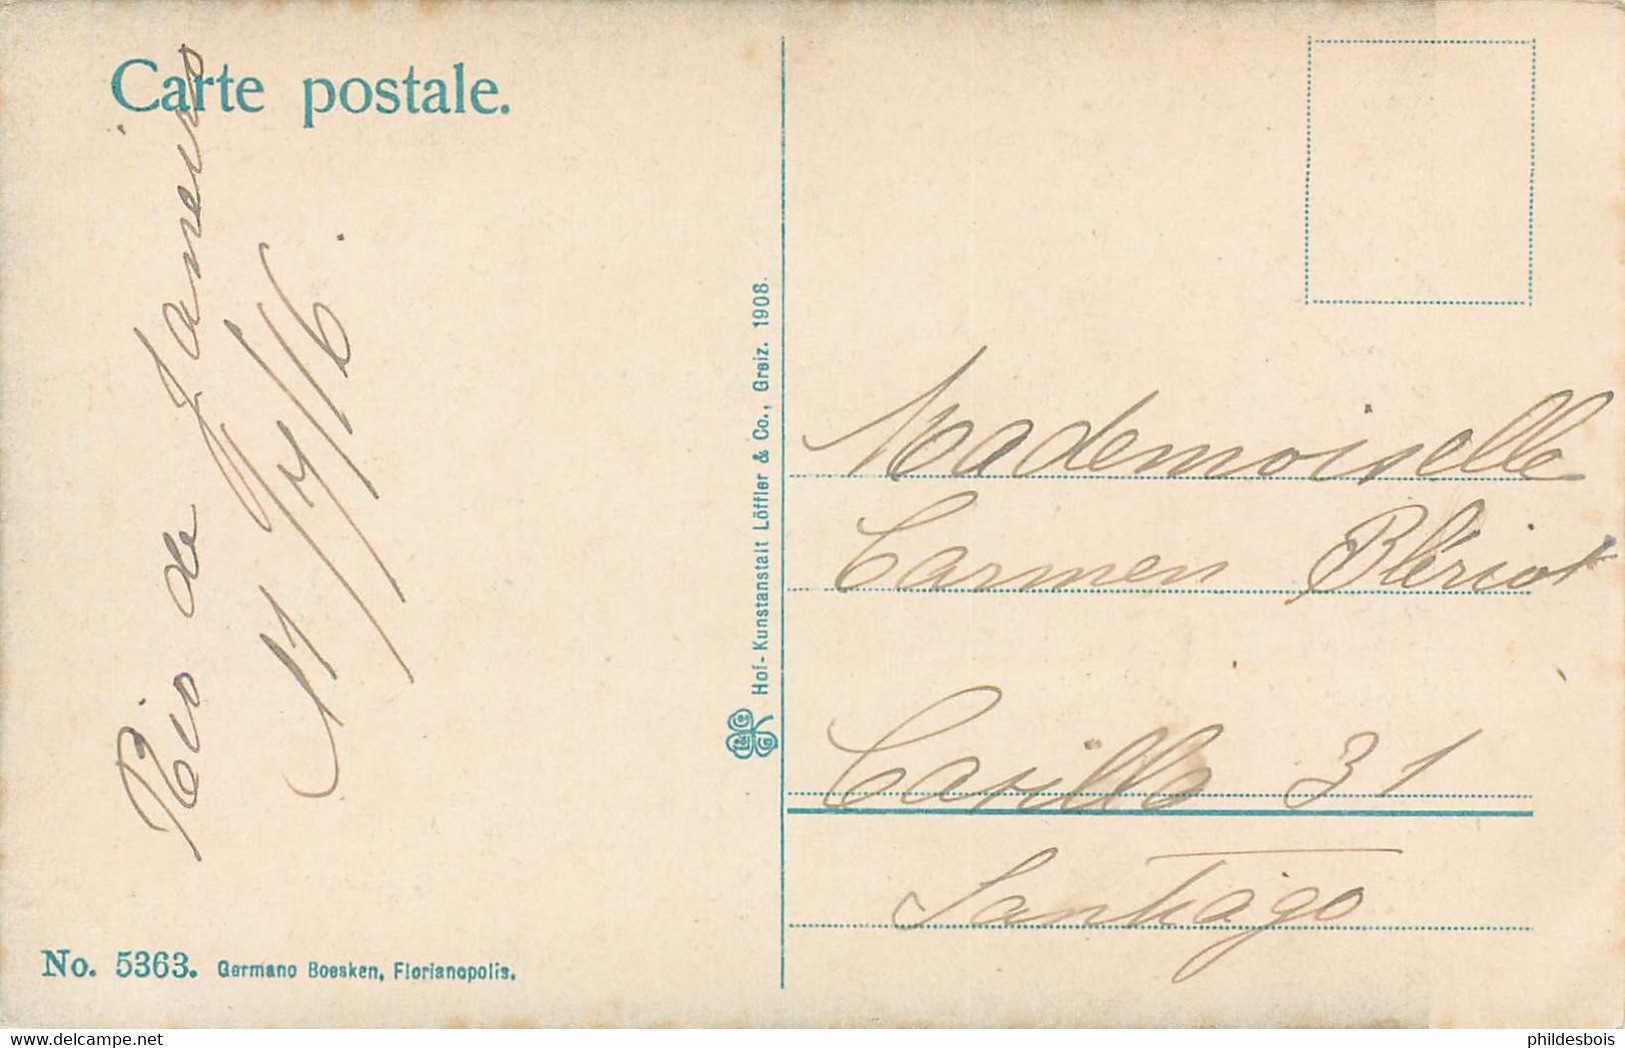 Carte postale.
Rio de Janeiro
11/7/16.
Hof-Kunstanstalt Löffler & Co., Greiz. 1908.
Mademoiselle
Carmen Blériot
Casilla 31
Santiago
No. 5363. Germano Boesken, Florianopolis.
phildesbois